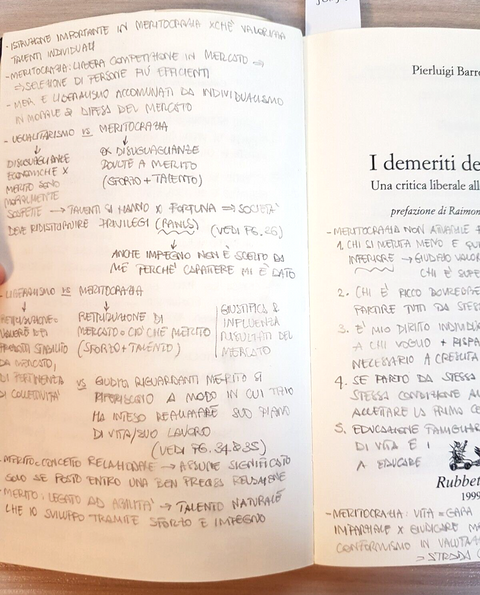 - ISTRUZIONE IMPORTANTE IN MERITOCRAZIA XCHÈ VALORIZZA
TALENTI INDIVIDUALI
- MERITOCRAZIA: LIBERA COMPETIZIONE IN MERCATO ⇒
⇒ SELEZIONE DI PERSONE PIÙ EFFICIENTI
- MER. E LIBERALISMO ACCOMUNATI DA INDIVIDUALISMO
IN MORALE & DIFESA DEL MERCATO
- UGUALITARISMO VS MERITOCRAZIA
↓ ↓
DISUGUAGLIANZE OK DISUGUAGLIANZE
ECONOMICHE X DOVUTE A MERITO
MERITO SONO (SFORZO + TALENTO)
MORALMENTE
SOSPETTE → TALENTI SI HANNO X FORTUNA ⇒ SOCIETÀ
DEVE RIDISTRIBUIRE PRIVILEGI (RAWLS) (VEDI PG. 26)
ANCHE IMPEGNO NON È SCELTO DA
ME PERCHÈ CARATTERE MI È DATO
- LIBERALISMO VS MERITOCRAZIA
↓ ↓
RETRIBUZIONE = RETRIBUZIONE DI GIUSTIFICA &
VALORE DEI MERCATO = CIÒ CHE MERITO INFLUENZA
STABILITO (SFORZO + TALENTO) RISULTATI DEL
DA MERCATO, MERCATO
DI COLLETTIVITÀ VS GIUDIZI RIGUARDANTI MERITO SI
RIFERISCONO A MODO IN CUI TIZIO
HA INTESO REALIZZARE SUO PIANO
DI VITA/SUO LAVORO
(VEDI PG. 34 & 35)
- MERITO = CONCETTO RELAZIONALE → ASSUME SIGNIFICATO
SOLO SE POSTO ENTRO UNA BEN PRECISA RELAZIONE
- MERITO: LEGATO AD ABILITÀ → TALENTO NATURALE
CHE IO SVILUPPO TRAMITE SFORZO E IMPEGNO
Pierluigi Barro
I demeriti de
Una critica liberale all
prefazione di Raimon
- MERITOCRAZIA NON ATTUABILE
1. CHI SI MERITA MENO È
INFERIORE → GIUDIZIO VALOR
CHI È SUPE
2. CHI È RICCO DOVREBBE
PARTIRE TUTTI DA STESS
3. È MIO DIRITTO INDIVIDU
A CHI VOGLIO + RISPA
NECESSARIO A CRESCITA
4. SE PARTO DA STESSA
STESSA CONDIZIONE
ACCETTARE LA
5. EDUCAZIONE FAMIGLIAR
DI VITA È I
A EDUCARE
Rubbet
1999
- MERITOCRAZIA: VITA = GARA
IMPARZIALE X GIUDICARE ME
CONFORMISMO IN VALUTA
→ STRADA